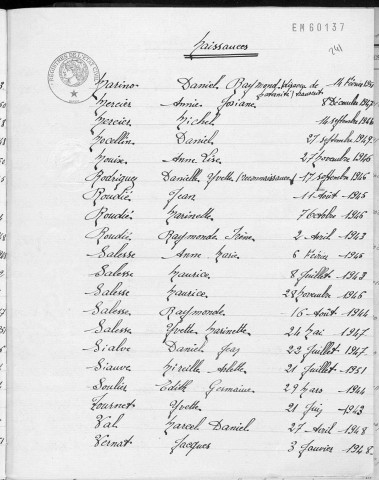 EM60137
241
Naissances
Marino Daniel Raymond 14 Février
Mercier Annie Josiane 8 Décembre 1947
Mercier Michel 14 septembre 1944
Mocellin Daniel 27 septembre 1949
Mouix Anne Lise 27 Novembre 1946
Rodriguez Danielle Yvette (Reconnaissance) 17 septembre 1946
Roudié Jean 11 Août 1945
Roudié Marinette 7 Octobre 1946
Roudié Raymonde Irène 2 Avril 1943
Salesse Anne Marie 6 Février 1946
Salesse Maurice 8 Juillet 1943
Salesse Maurice 28 Novembre 1946
Salesse Raymonde 16 Août 1944
Salesse Yvette Marinette 24 Mai 1947
Sialve Daniel Jean 22 Juillet 1947
Siauve Mireille Arlette 21 Juillet 1951
Soulié Edith Germaine 29 Mars 1944
Tournet Yvette 21 Juin 1942
Val Marcel Daniel 27 Avril 1948
Vernat Jacques 3 Janvier 1948